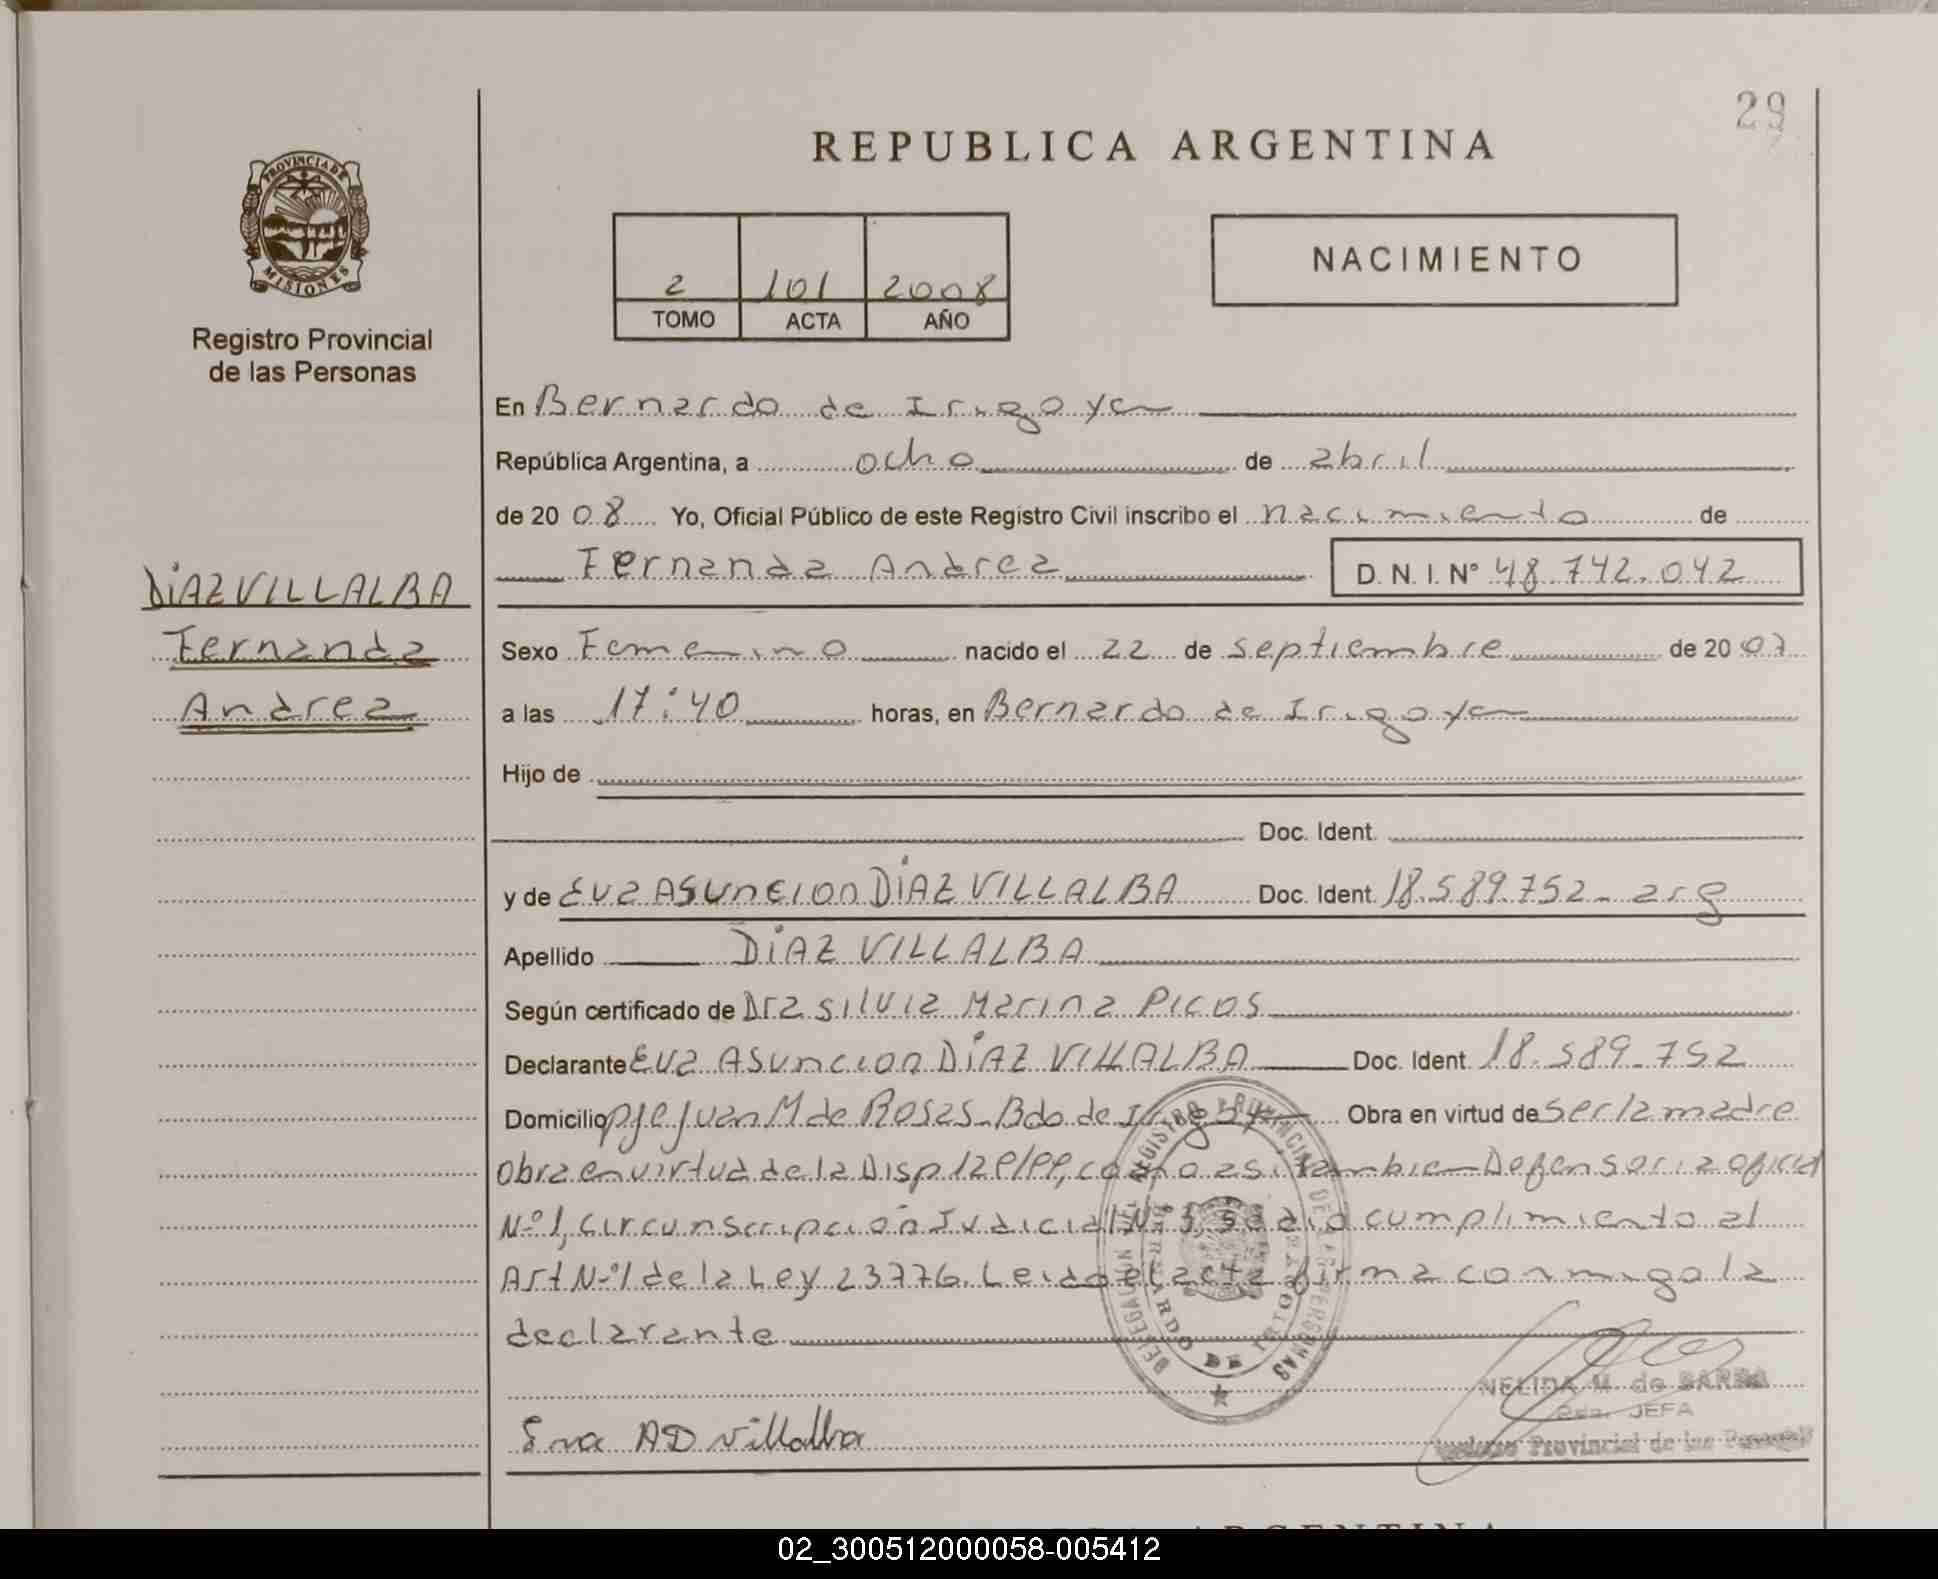 29
REPUBLICA ARGENTINA
PROVINCIA DE
MISIONES
Registro Provincial
de las Personas
2 101 2008
TOMO ACTA AÑO
NACIMIENTO
En Bernardo de Irigoyen
República Argentina, a ocho de abril
de 20 08 Yo, Oficial Público de este Registro Civil inscribo el nacimiento de
Fernanda Andrea D. N. I. Nº 48.742.042
DíAZ VILLALBA
Fernanda
Andrea
Sexo Femenino nacido el 22 de septiembre de 20 07
a las 17:40 horas, en Bernardo de Irigoyen
Hijo de
Doc. Ident.
y de Eva ASUnCIOn DíAZ VILLALBA Doc. Ident. 18.589.752 - arg
Apellido DíAZ VILLALBA
Según certificado de Dra silvia Marina Picos
Declarante Eva ASUnCIOn DíAZ VILLALBA Doc. Ident. 18.589.752
Domicilio pje Juan M de Rosas - Bdo de Irigoyen Obra en virtud de ser la madre
Obra en virtud de la Disp 12 como asi tambien Defensoria oficial
Nº 1, circunscripción Judicial Nº 3 se dio cumplimiento al
Art Nº 1 de la Ley 23776. Leido el acta firma conmigo la
declarante
REGISTRO PROVINCIAL DE LAS PERSONAS
DELEGACION
BERNARDO DE IRIGOYEN
NELIDA M. de BARBA
JEFA
Provincial de las Personas
Eva AD Villalba
ARGENTINA
02_300512000058-005412